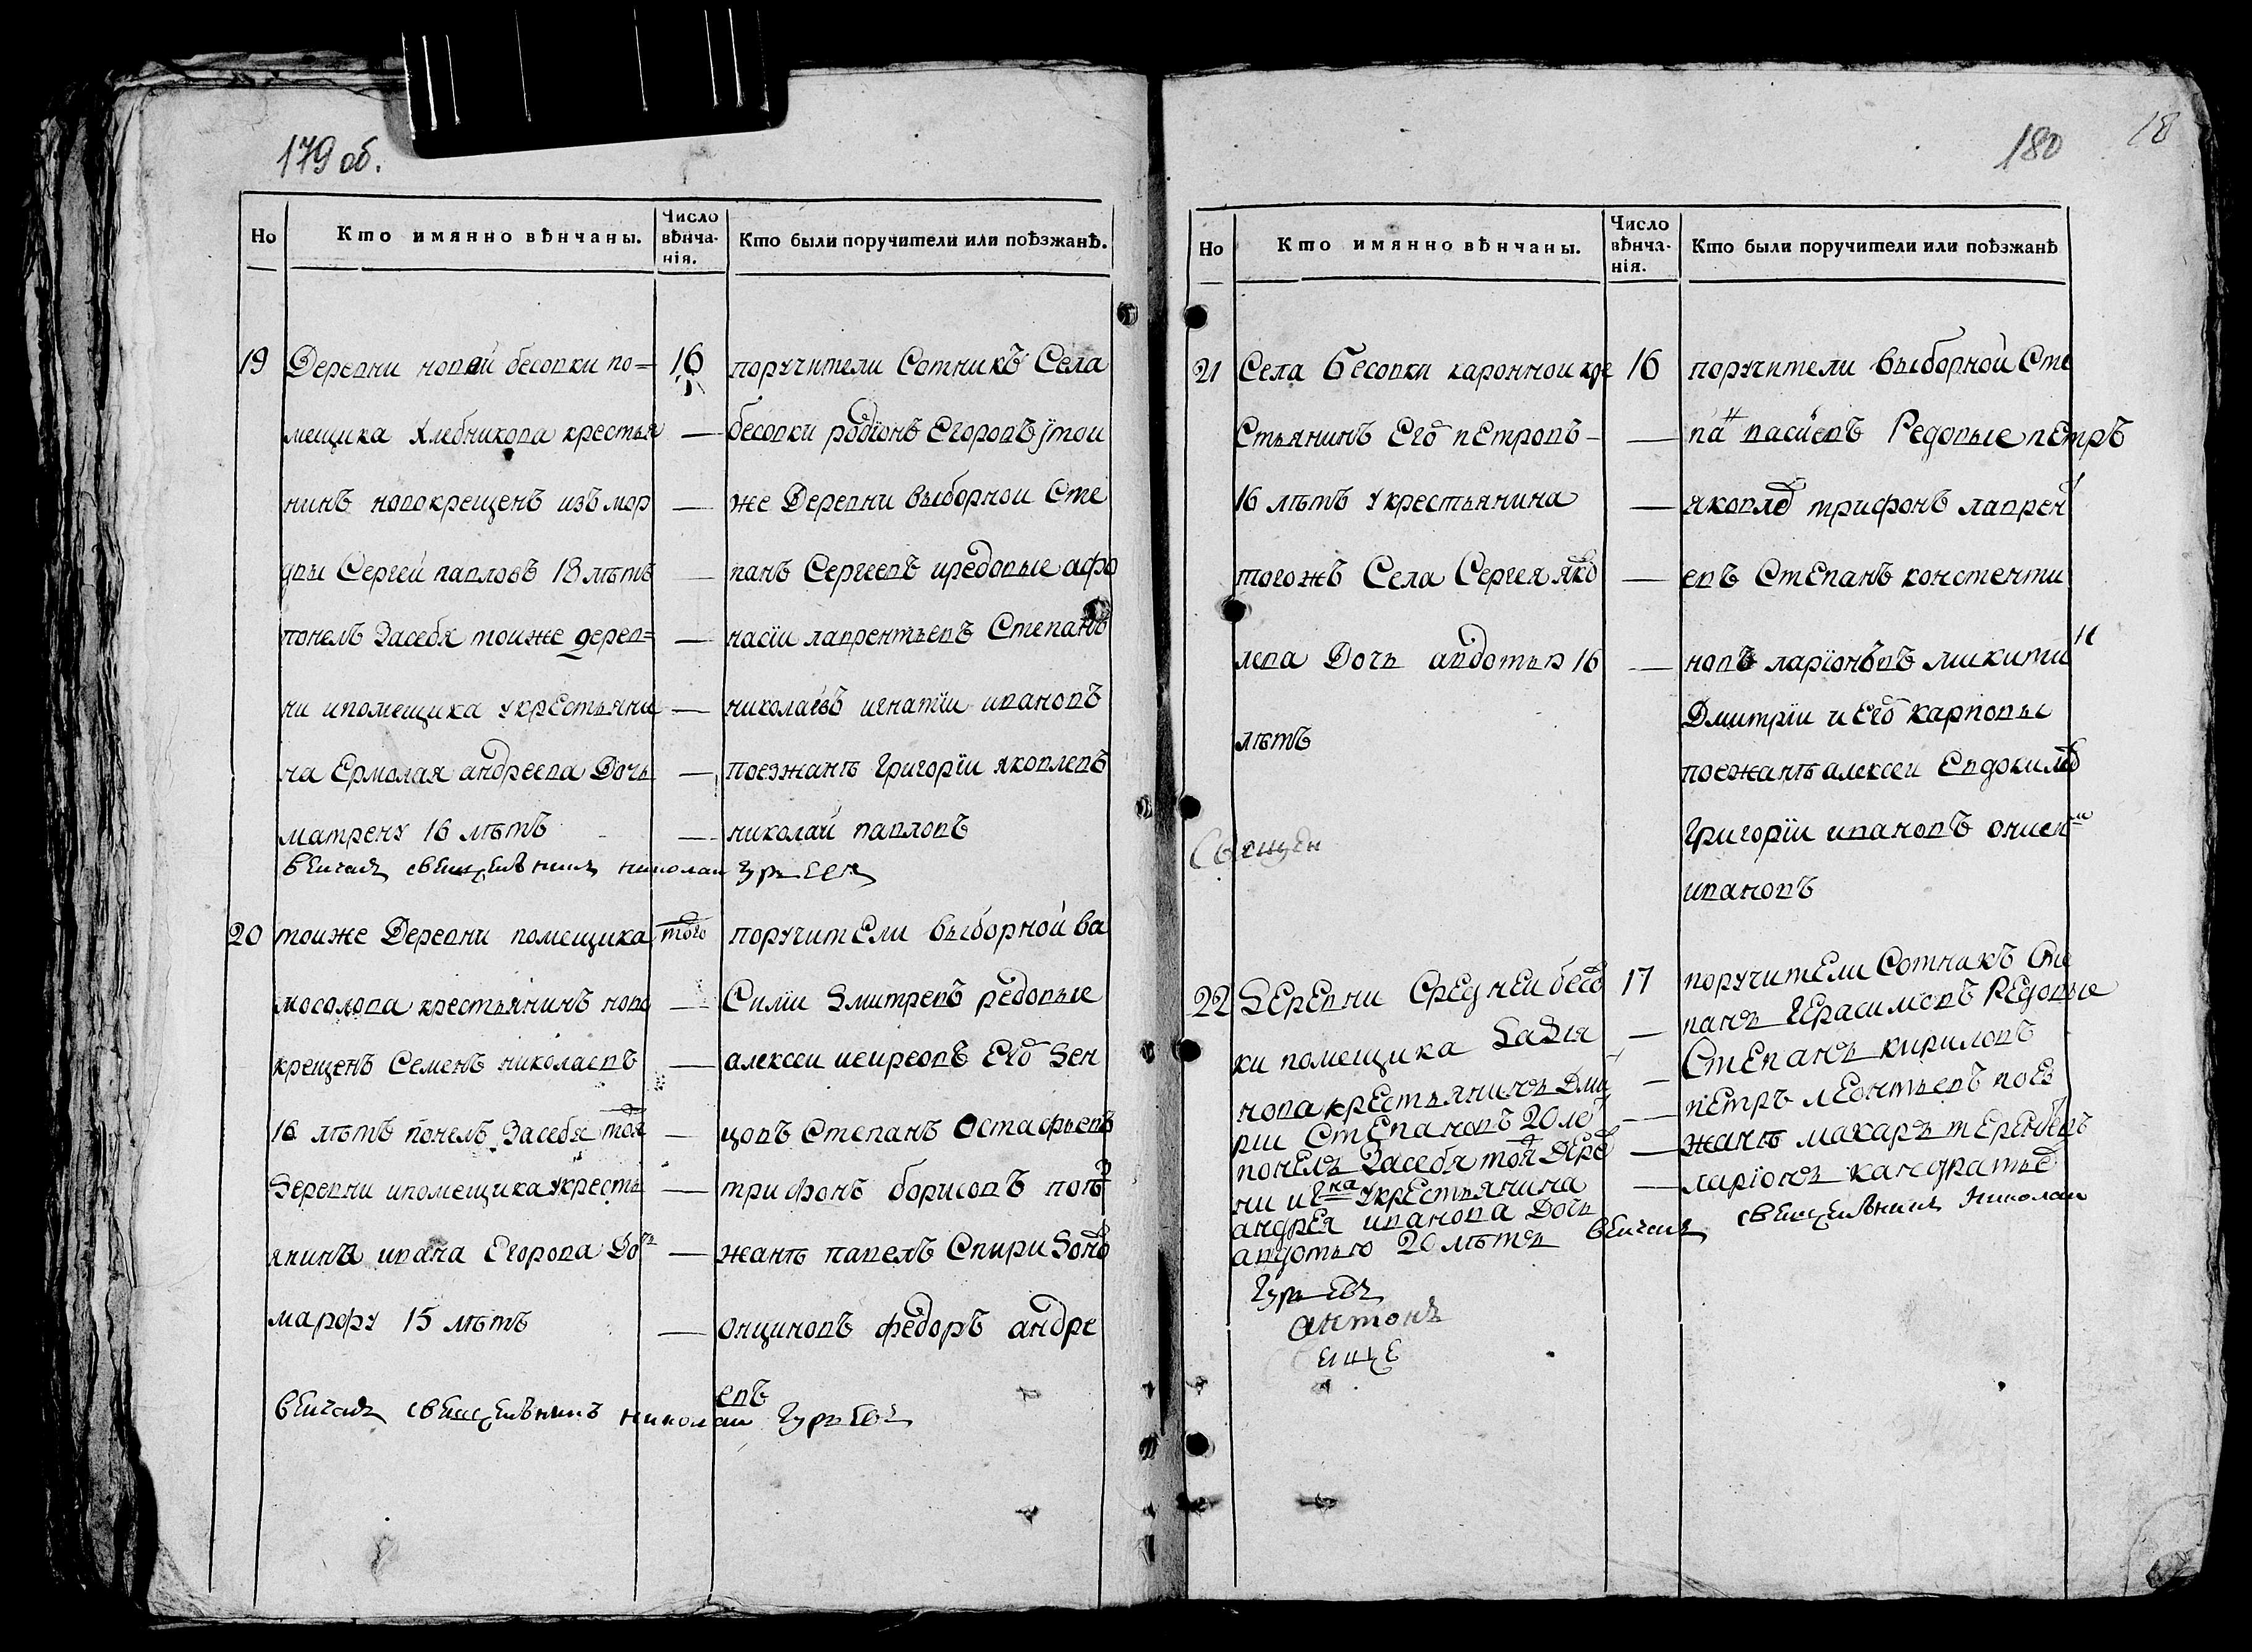 179 об.
Но
Кто имянно вѣнчаны.
Число вѣнча-нія.
Кто были поручители или поѣзжанѣ.
19
Деревни новай бесовки по=
мещика хлебникова крестья
нинъ новокрещенъ изъ мор
двы Сергей павловъ 18 лѣтъ
понелъ засебя тоиже дерев=
ни ипомещика укрестьяни
на Ермолая андреева Дочь
матрену 16 лѣтъ
16
поручители Сотникъ Села
бесовки родїонъ Егоровъ утои
же Деревни выборнои Сте
панъ Сергеевъ иредовые афо
насїи лаврентьевъ Степанъ
николаевъ игнатїи ивановъ
поезжанѣ григорїи яковлевъ
николай павловъ
венчалъ священникъ николаи гурьевъ
20
тоиже Деревни помещика
мосолова крестьянинъ ново
крещенъ Семенъ николаевъ
16 лѣтъ понелъ засебя тоя
Деревни ипомещика укресть
янина ивана Егорова Дочь
марфу 15 лѣтъ
того
поручители выборной ва
Силїи Дмитревъ редовые
алексеи Его Ден
цовъ Степанъ Остафьевъ
трифонъ борисовъ поѣз
жанѣ павелъ СпириДоновъ
федоръ андре
евъ
венчалъ священникъ николаи гурьевъ
180
18
Но
Кто имянно вѣнчаны.
Число вѣнча-нія.
Кто были поручители или поѣзжанѣ
21
Села бесовки каронной кре
Стьянинъ Его пЕтровъ
16 лѣтъ укрестьянина
тогожъ Села Сергея яко
лева Дочь авдотья 16
лѣтъ
16
поручители выборной Сте
панъ васиевъ Редовые пЕтръ
яковлев трифонъ лаврен
евъ СтЕпанъ констенти
новъ ларїонъвъ микитин
Дмитрїи и Его карповы
поежанѣ алексеи Евдокимов
григорїи ивановъ
ивановъ
22
ДЕРЕвни СРЕдней бесо
ки помещика
нова крЕстьянинъ Дми
рїи СтЕпановъ 20 ле
понелъ засебя тоя ДЕрев
ни и гна укрЕстьянина
андрЕя иванова Дочь
авдотью 20 лѣтъ
17
поручитЕли Сотникъ Сте
панъ гЕрасимовъ РЕдовые
СтЕпанъ кириловъ
пЕтръ лЕонтьевъ поЕз
жанѣ макаръ тЕрЕнтьевъ
ларїонъ кандратьев
венчалъ священникъ николаи
гурьевъ
антонъ
еще